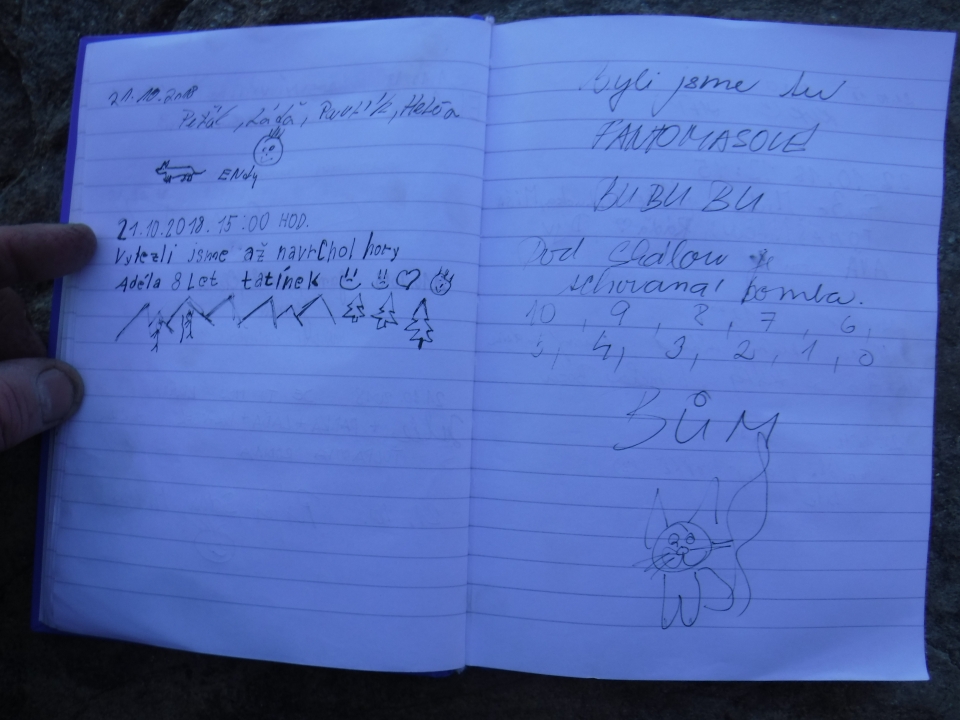 21.10.2018
Péťa, Láďa, Pavlík, Helča
ENdy
21.10.2018. 15:00 HOD.
Vylezli jsme až navrchol hory
Adéla 8 Let tatínek
Byli jsme tu
FANTOMASOVÉ
BU BU BU
Pod skálou je
schovaná bomba.
10, 9, 8, 7, 6,
5, 4, 3, 2, 1, 0
BŮM